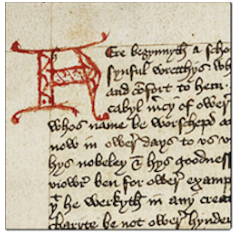 Here begynnyth a scho
synful wrecchys wh
and cōfort to hem.
cabyl mcy of ower
whos name be worschepd
now in ower days to us
hys nobeley & hys goodness
ben for ower examp
he werkyth in any crea
charyte be not ower hynder